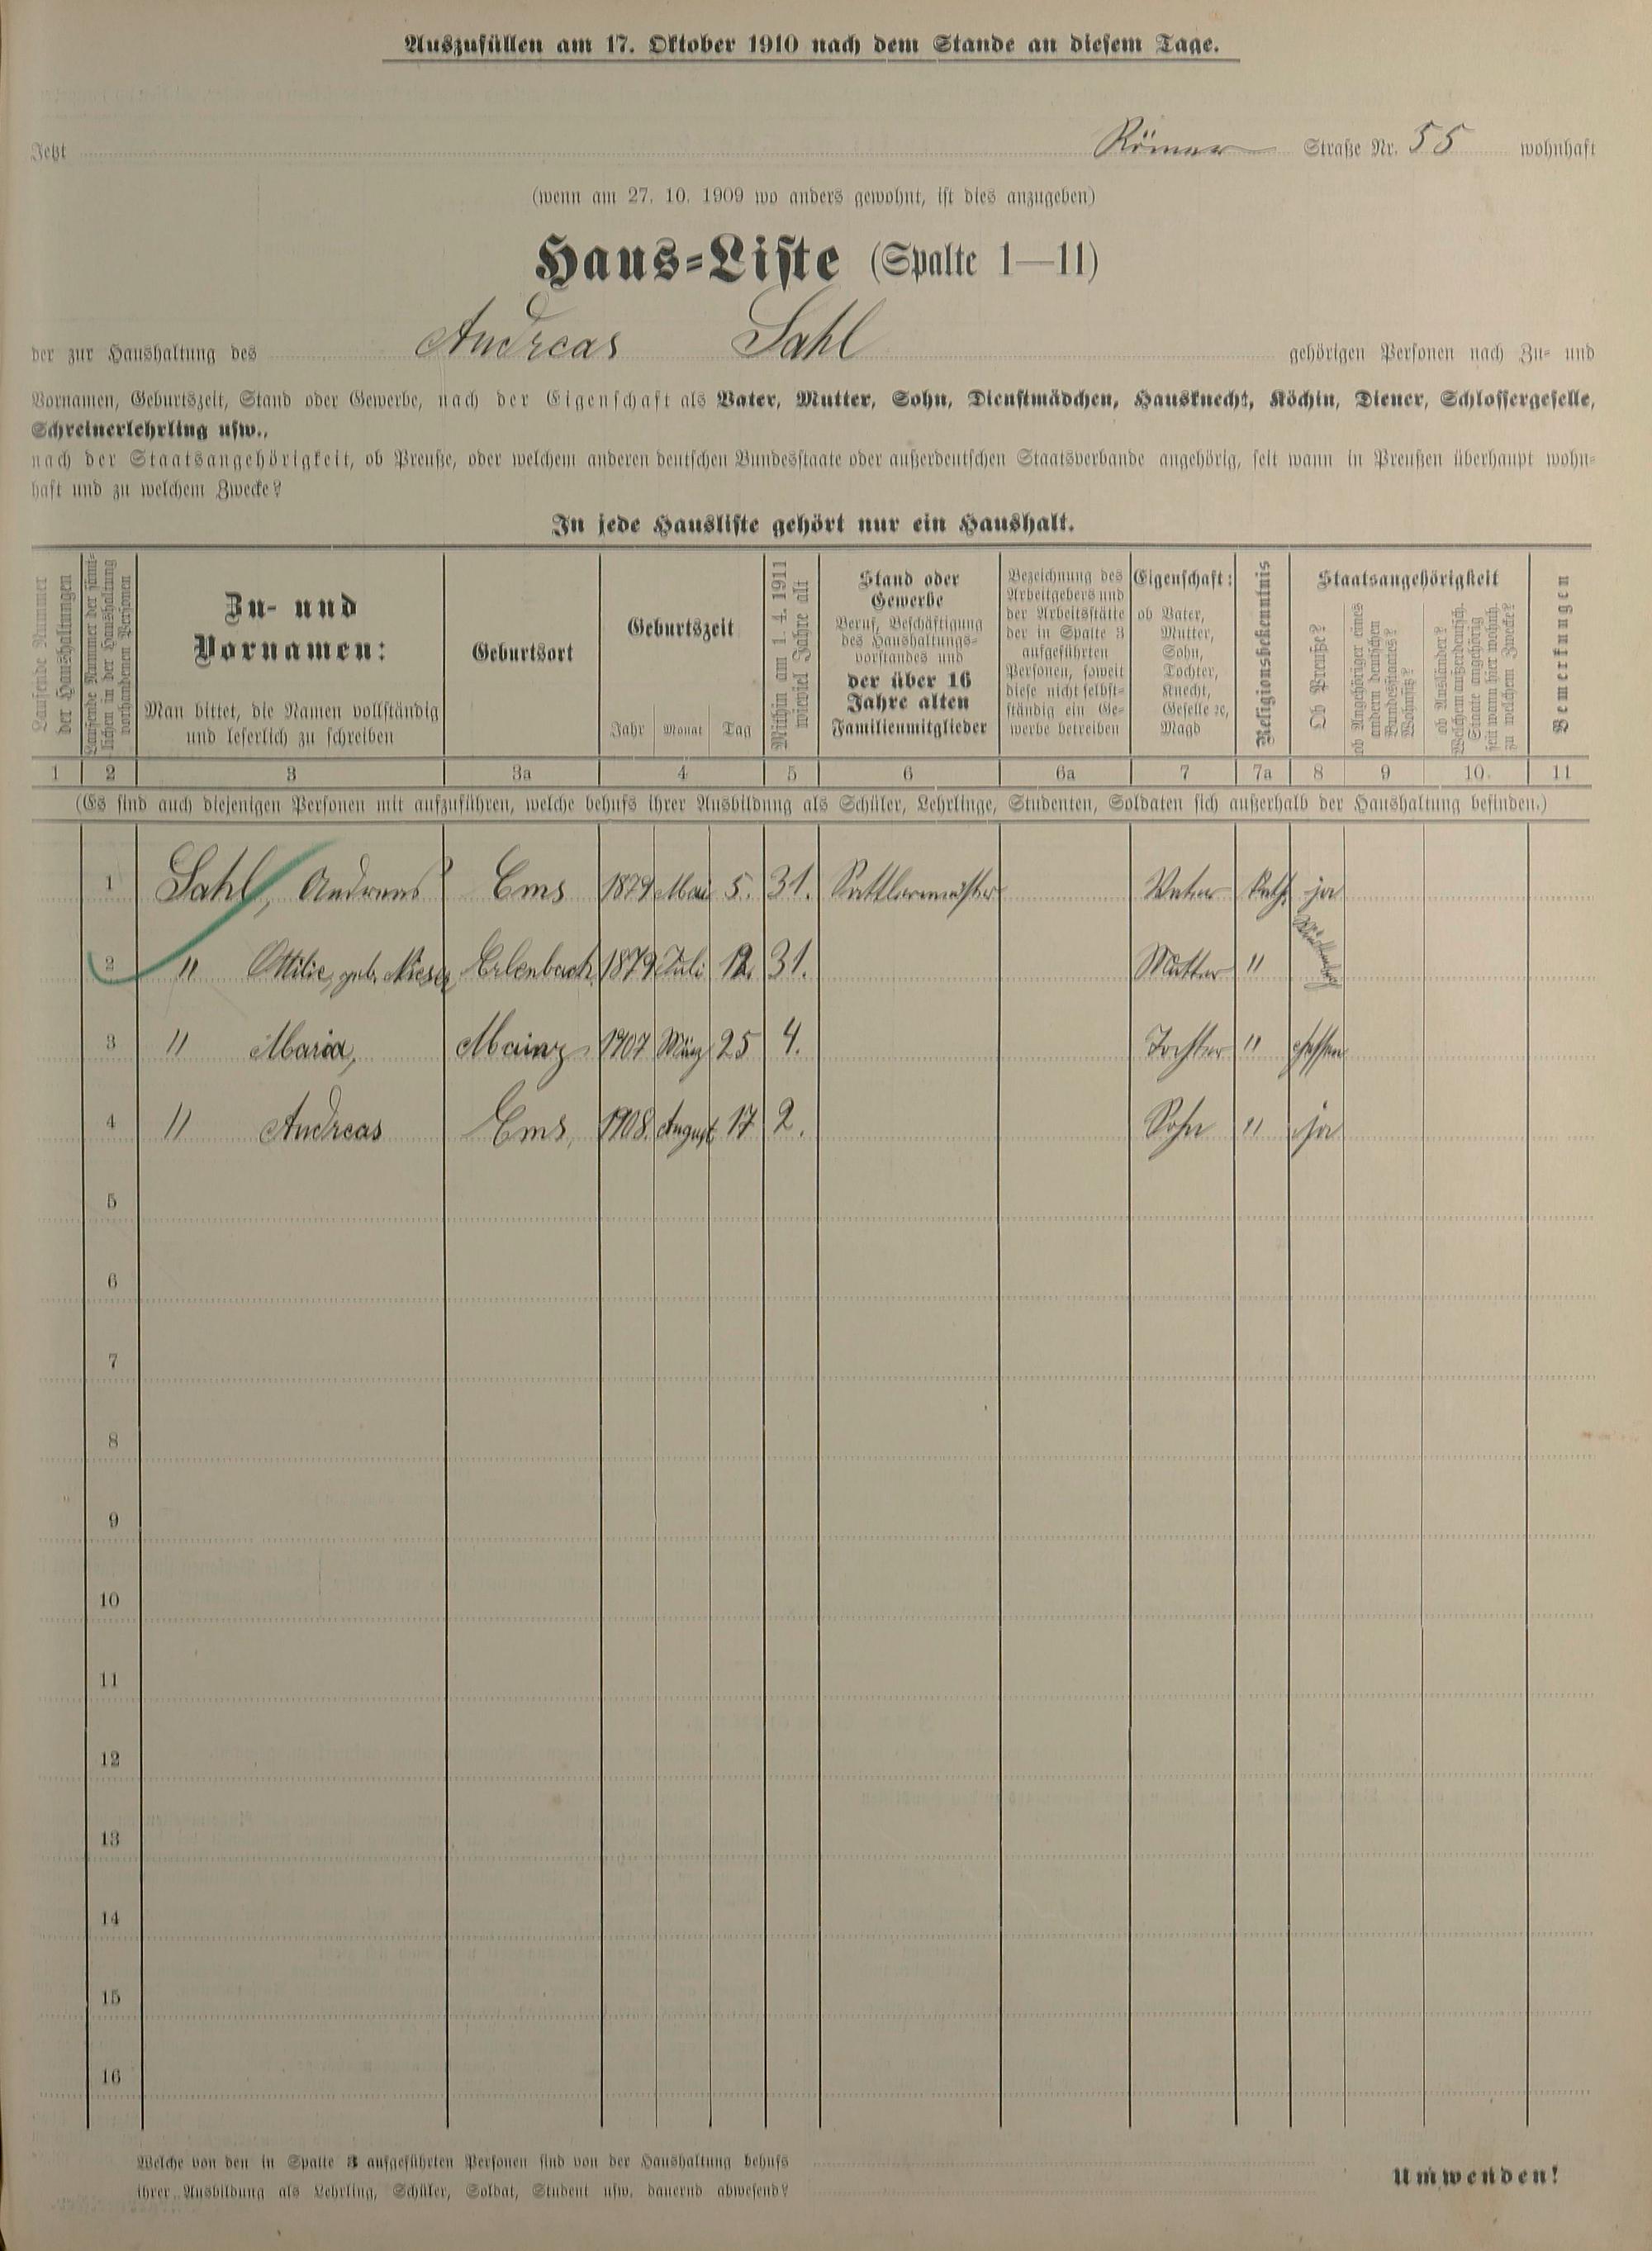 Auszufüllen am 17. Oktober 1910 nach dem Stande an diesem Tage.
Jetzt Römer Straße Nr. 55 wohnhaft
(wenn am 27. 10. 1909 wo anders gewohnt, ist dies anzugeben)
Haus-Liste (Spalte 1—11)
der zur Haushaltung des Andreas Sahl gehörigen Personen nach Zu- und
Vornamen, Geburtszeit, Stand oder Gewerbe, nach der Eigenschaft als Vater, Mutter, Sohn, Dienstmädchen, Hausknecht, Köchin, Diener, Schlossergeselle,
Schreinerlehrling usw.,
nach der Staatsangehörigkeit, ob Preuße, oder welchem anderen deutschen Bundesstaate oder außerdeutschen Staatsverbande angehörig, seit wann in Preußen überhaupt wohn-
haft und zu welchem Zwecke?
In jede Hausliste gehört nur ein Haushalt.
Laufende Nummer
der Haushaltungen
Laufende Nummer der sämt-
lichen in der Haushaltung
vorhandenen Personen
Zu- und
Vornamen:
Man bittet, die Namen vollständig
und leserlich zu schreiben
Geburtsort
Geburtszeit
Jahr Monat Tag
Mithin am 1. 4. 1911
wieviel Jahre alt
Stand oder
Gewerbe
Beruf, Beschäftigung
des Haushaltungs-
vorstandes und
der über 16
Jahre alten
Familienmitglieder
Bezeichnung des
Arbeitgebers und
der Arbeitsstätte
der in Spalte 3
aufgeführten
Personen, soweit
diese nicht selbst-
ständig ein Ge-
werbe betreiben
Eigenschaft:
ob Vater,
Mutter,
Sohn,
Tochter,
Knecht,
Geselle ꝛc,
Magd
Religionsbekenntnis
Staatsangehörigkeit
Ob Preuße?
ob Angehöriger eines
andern deutschen
Bundesstaates?
Wohnsitz?
ob Ausländer?
Welchem außerdeutsch.
Staate angehörig
seit wann hier wohnh.
zu welchem Zwecke?
Bemerkungen
1 2 3 3a 4 5 6 6a 7 7a 8 9 10. 11
(Es sind auch diejenigen Personen mit aufzuführen, welche behufs ihrer Ausbildung als Schüler, Lehrlinge, Studenten, Soldaten sich außerhalb der Haushaltung befinden.)
1 Sahl, Andreas Ems 1879 Mai 5. 31. Sattlermeister Vater Kath. ja
2 " Ottilie, geb. Erlenbach 1879 Juli 12. 31. Mutter "
3 " Maria, Mainz 1907 März 25 4. Tochter " Hessen
4 " Andreas Ems, 1908. August 17 2. Sohn " ja
5
6
7
8
9
10
11
12
13
14
15
16
Welche von den in Spalte 3 aufgeführten Personen sind von der Haushaltung behufs
ihrer Ausbildung als Lehrling, Schüler, Soldat, Student usw. dauernd abwesend?
Umwenden!